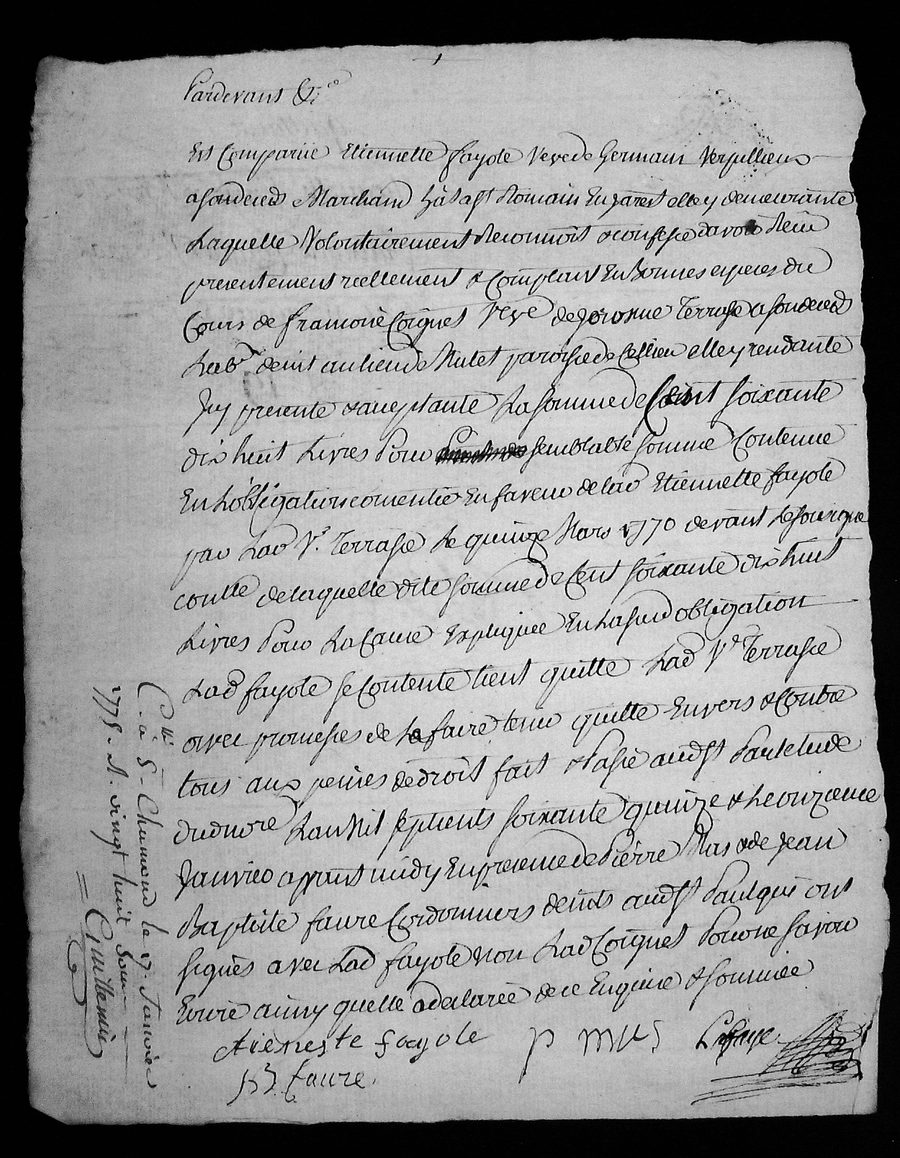 Pardevant &c
Est Comparüe Etiennette fayole Veve de Germain Verpillieux
a son deceds Marchand à St Romain En Jarest elle y demeurante
Laquelle Volontairement Reconnoit & confesse d'avoir Reçu
presentement reellement & Comptant En bonnes especes du
Cours de francoise Coignet Veve de Jerosme Terrasse a son deceds
Labr demt au lieu de Mulet paroisse de Cellieu elle y rendante
Icy presente & acceptante La somme de Cent soixante
dix huit Livres Pour semblable somme Contenue
En L'obligation consentie En faveur de lad Etiennette fayole
par Lad Ve. Terrasse Le quinze Mars 1770 devant
de laquelle dite somme de Cent soixante dix huit
Livres Pour La Cause Expliquée En Lasusd obligation
Lad fayole se Contente tient quitte Lad Ve Terrasse
avec promesses de La faire tenir quitte Envers & Contre
tous aux peines de droit fait & Passé aud St Paul
L'an Mil sept cents soixante quinze & Le onzieme
Janvier appres midy En presence de Pierre Mas & de Jean
Baptiste faure Cordonniers demts aud St Paul qui ont
signés avec Lad fayole non Lad Coignet Pour ne savoir
Ecrire ainsy quelle a declarée de ce Enquise & sommée
etieneste fayole
p mus
Lafaye
JB faure
Clle à St Chamond le 17 Janvier
1775. R. vingt huit sous
Guillemin